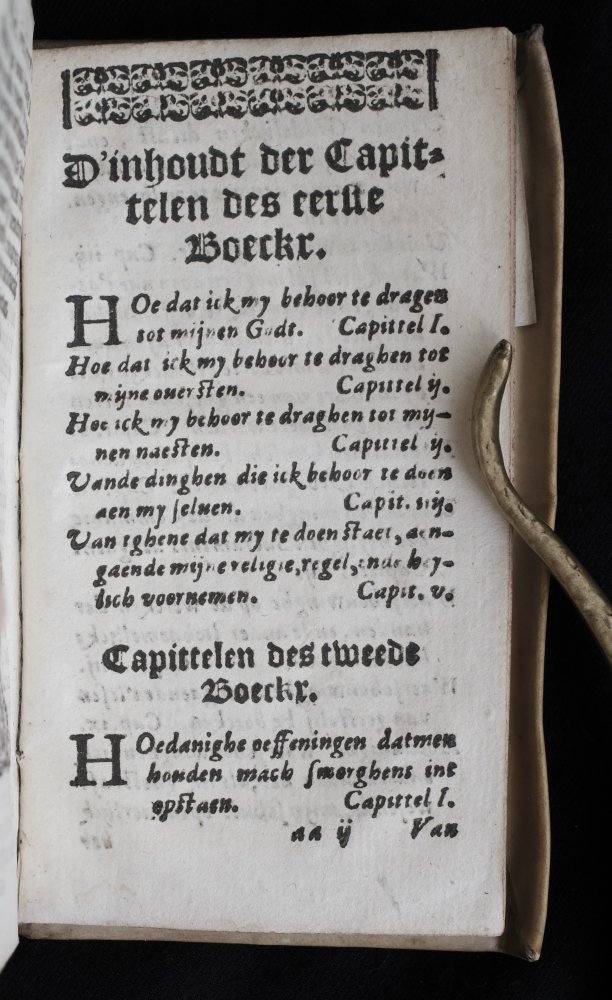 D'inhoudt der Capit⸗
telen des eerste
Boeckr.
HOe dat ick my behoor te dragen
tot mijnen Godt. Capittel I.
Hoe dat ick my behoor te draghen tot
mijne oversten. Capittel ij.
Hoe ick my behoor te draghen tot my-
nen naesten. Capittel ij.
Vande dinghen die ick behoor te doen
aen my ſeluen. Capit. iiij.
Van tghene dat my te doen staet, aen-
gaende mijne religie, regel, ende hey-
lich voornemen. Capit. v.
Capittelen des tweede
Boeckr.
HOedanighe oeffeningen datmen
houden mach ſmorghens int
opstaen. Capittel I.
aa ij Van